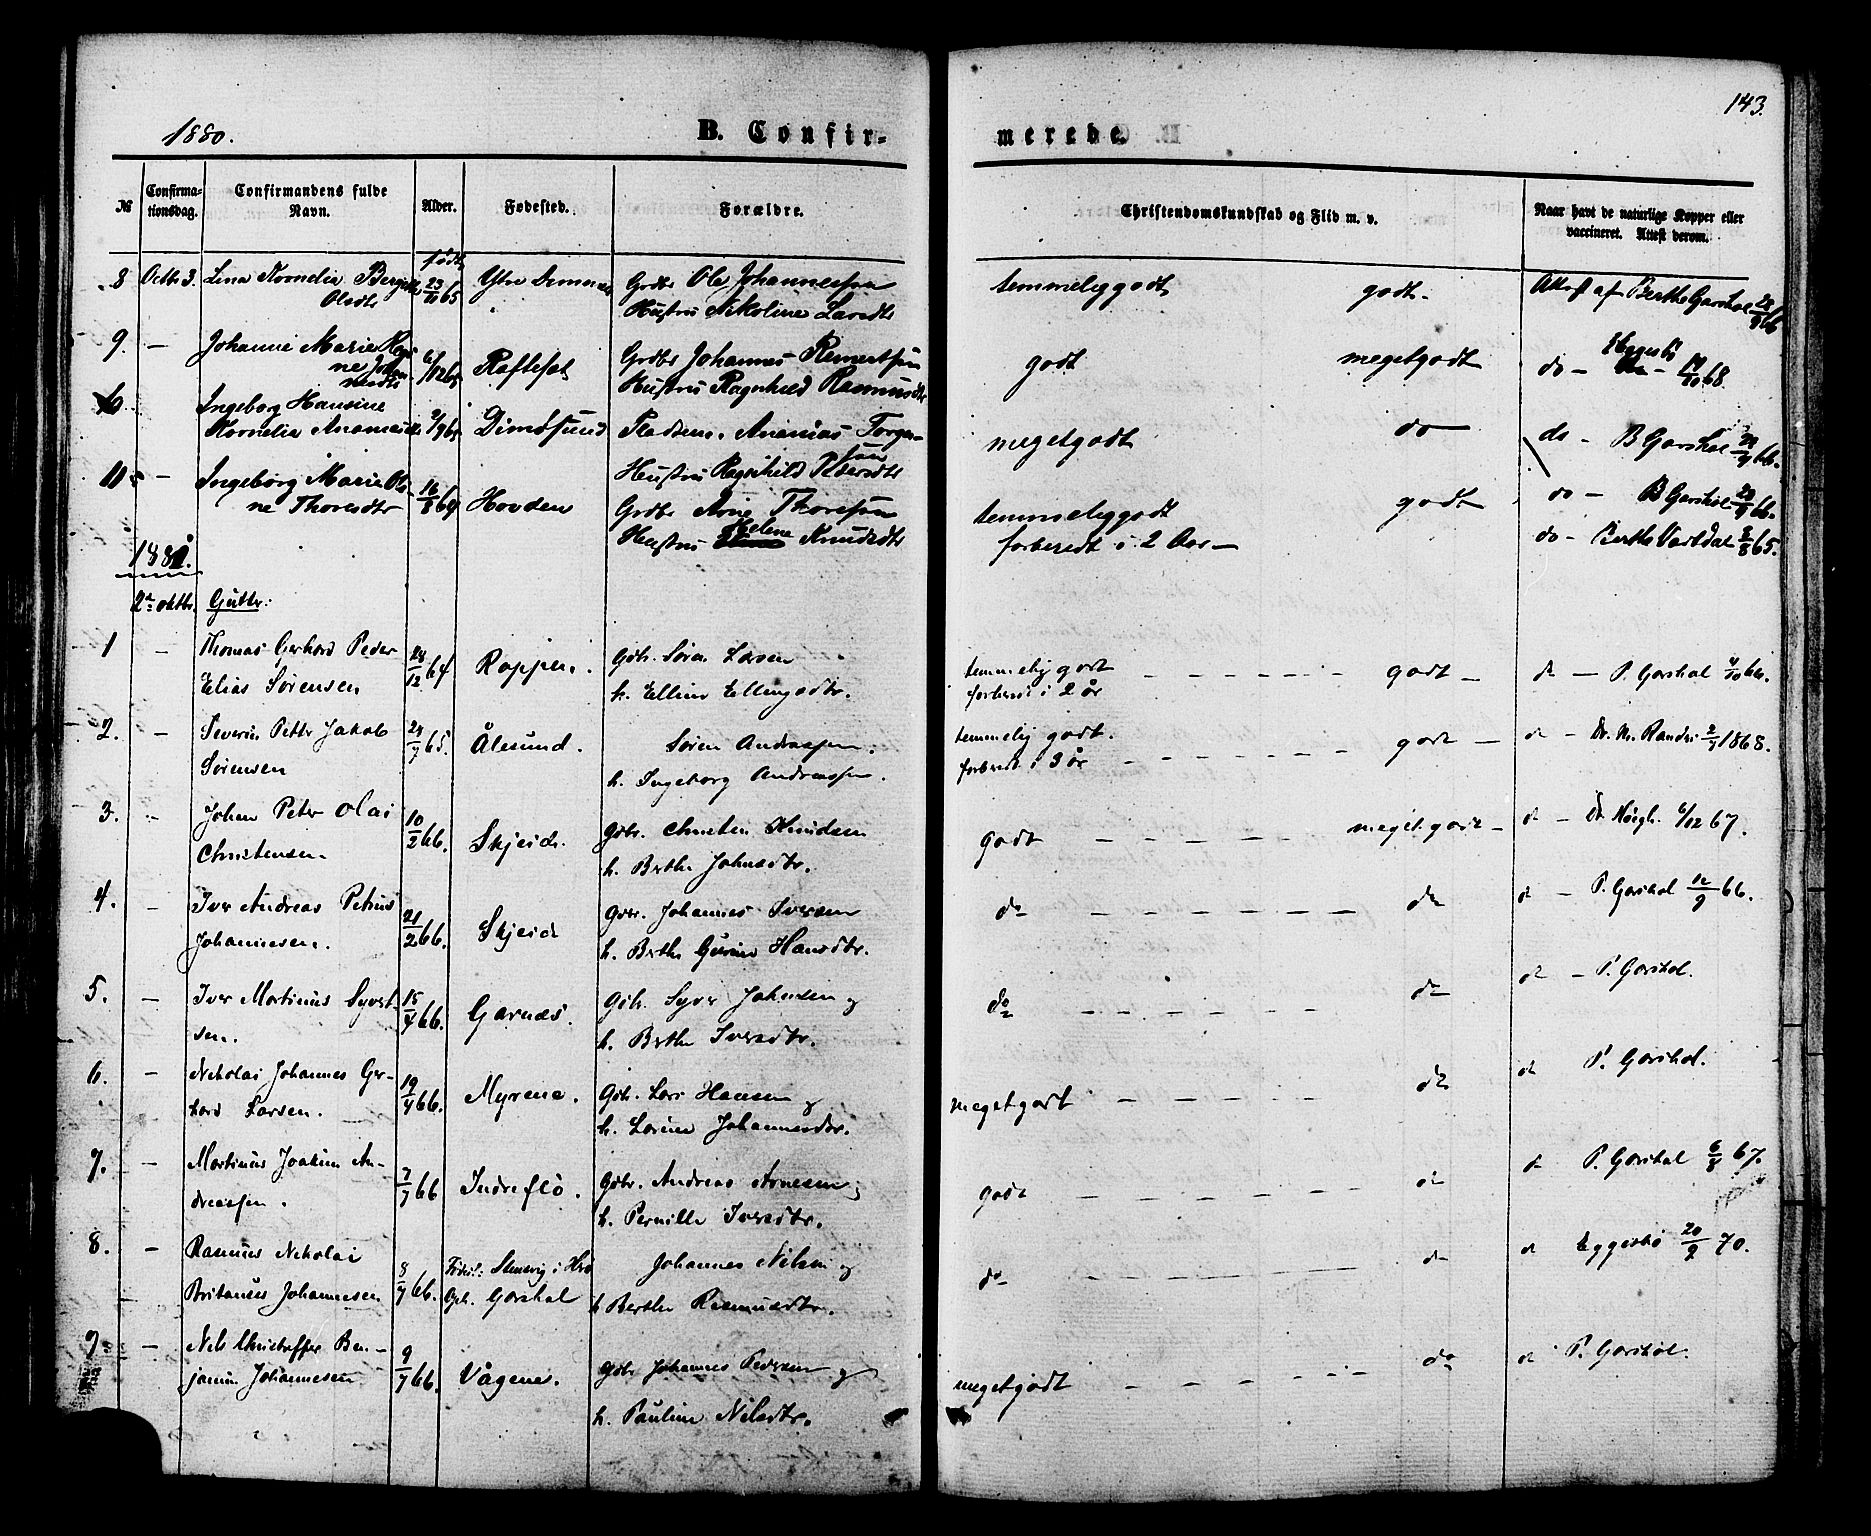 143.
1880.
B. Confir-
merede.
№
Confirma-
tionsdag.
Confirmandens fulde
Navn.
Alder.
Fødested.
Forældre.
Christendomskundskab og Flid m. v.
Naar havt de naturlige Kopper eller
vaccineret. Attest derom.
født
8 Octbr 3. Lina Kornelia Olsdtr 23/10 65 Ytre Gaardbr Ole Johannessen
Hustru Nikoline Larsdtr
temmeliggodt godt. Attest af Berthe Garshol
9. — Johanne Marie 6/12 65 Rafteset Grdbr Johannes Reinertsen
Hustru Ragnhild Rasmusdtr
godt megetgodt do — Eggesbö 68.
10 Ingeborg Hansine
Kornelia Dimdsund Pladsm. Ananias
Hustru Ragnhild Pedersdtr
megetgodt do do — B Garshol 66.
11 — Ingeborg Marie Ol-
ne Thoresdtr Hovden Grdbr Arne Thoresen
Hustru Helene Knudsdtr
temmeliggodt godt do — B Garshol 66.
forberedt i 2 Aar — do — Berthe Vartdal 65.
1881.
2n oktbr. Gutter:
1 — Thomas Gerhard Peder
Elias Sørensen 28/12 64 Roppen. Gdbr. Søren Larsen
h. Elline Ellingsdtr.
temmelig godt godt — do — P. Garshol 4/10 66.
forberedt i 2 år
2. — Severin Petter Jakob
Sørensen 65. Ålesund. Søren Andreassen.
h. Ingeborg Andreassen.
temmelig godt. godt — do — Dr. Randers 1868.
forberedt i 3 år
3. — Johan Peter Olai
Christensen. 10/2 66. Skjeide. Gdbr. Christen Knudsen
h. Berthe Johnsdtr.
godt meget godt — do — Dr. Høegh. 6/12 67.
4. — Iver Andreas Petrus
Johannesen. 21/2 66. Skjeide Gdbr. Johannes Iversen
h. Berthe Gurine Hansdtr.
do do do — P. Garshol 12/9 66.
5. — Iver Martinus Syvert-
sen. 15/4 66. Garnæs. Gdbr. Syver Johnsen og
h. Berthe Iversdtr.
do do do — P. Garshol.
6. — Nikolai Johannes Ger-
hard Larsen. 19/4 66. Myrene. Gdbr. Lars Hansen og
h. Larine Johannesdtr.
megetgodt do do P. Garshol.
7. — Martinus Joakim An-
dreassen. 7/7 66 Indreflö. Gdbr. Andreas Arnesen og
h. Pernille Iversdtr.
godt do do P. Garshol 6/8 67.
8. — Rasmus Nikolai
Britanus Johannesen 8/7 66. Garshol Johannes Nilsen og
h Berthe Rasmusdtr.
do do do Eggesbö 20/9 70.
9 — Nils Christoffer Ben-
jamin Johannesen 9/7 66. Vågene. Gdbr Johannes Pedersen og
h. Pauline Nilsdtr.
megetgodt do do P. Garshol.